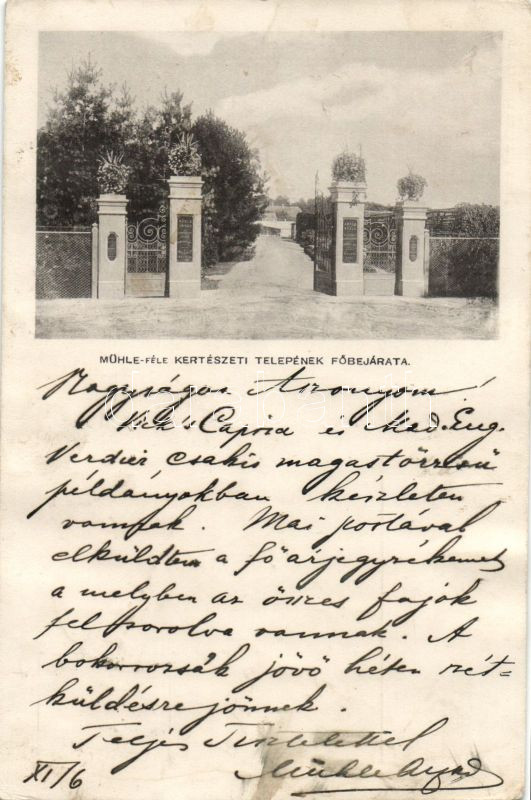 MÜHLE-FÉLE KERTÉSZETI TELEPÉNEK FŐBEJÁRATA.
Nagyságos Asszonyom!
Mek. Caprea és Mad. Eug.
Verdier csakis magastörzsü
példányokban készleten
vannak. Mai postával
elküldtem a fő árjegyzékemet
a melyben az összes fajok
felsorolva vannak. A
bokorrozsák jövő héten szét-
küldésre jönnek.
Teljes Tisztelettel
XI/6 Mühle Árpád